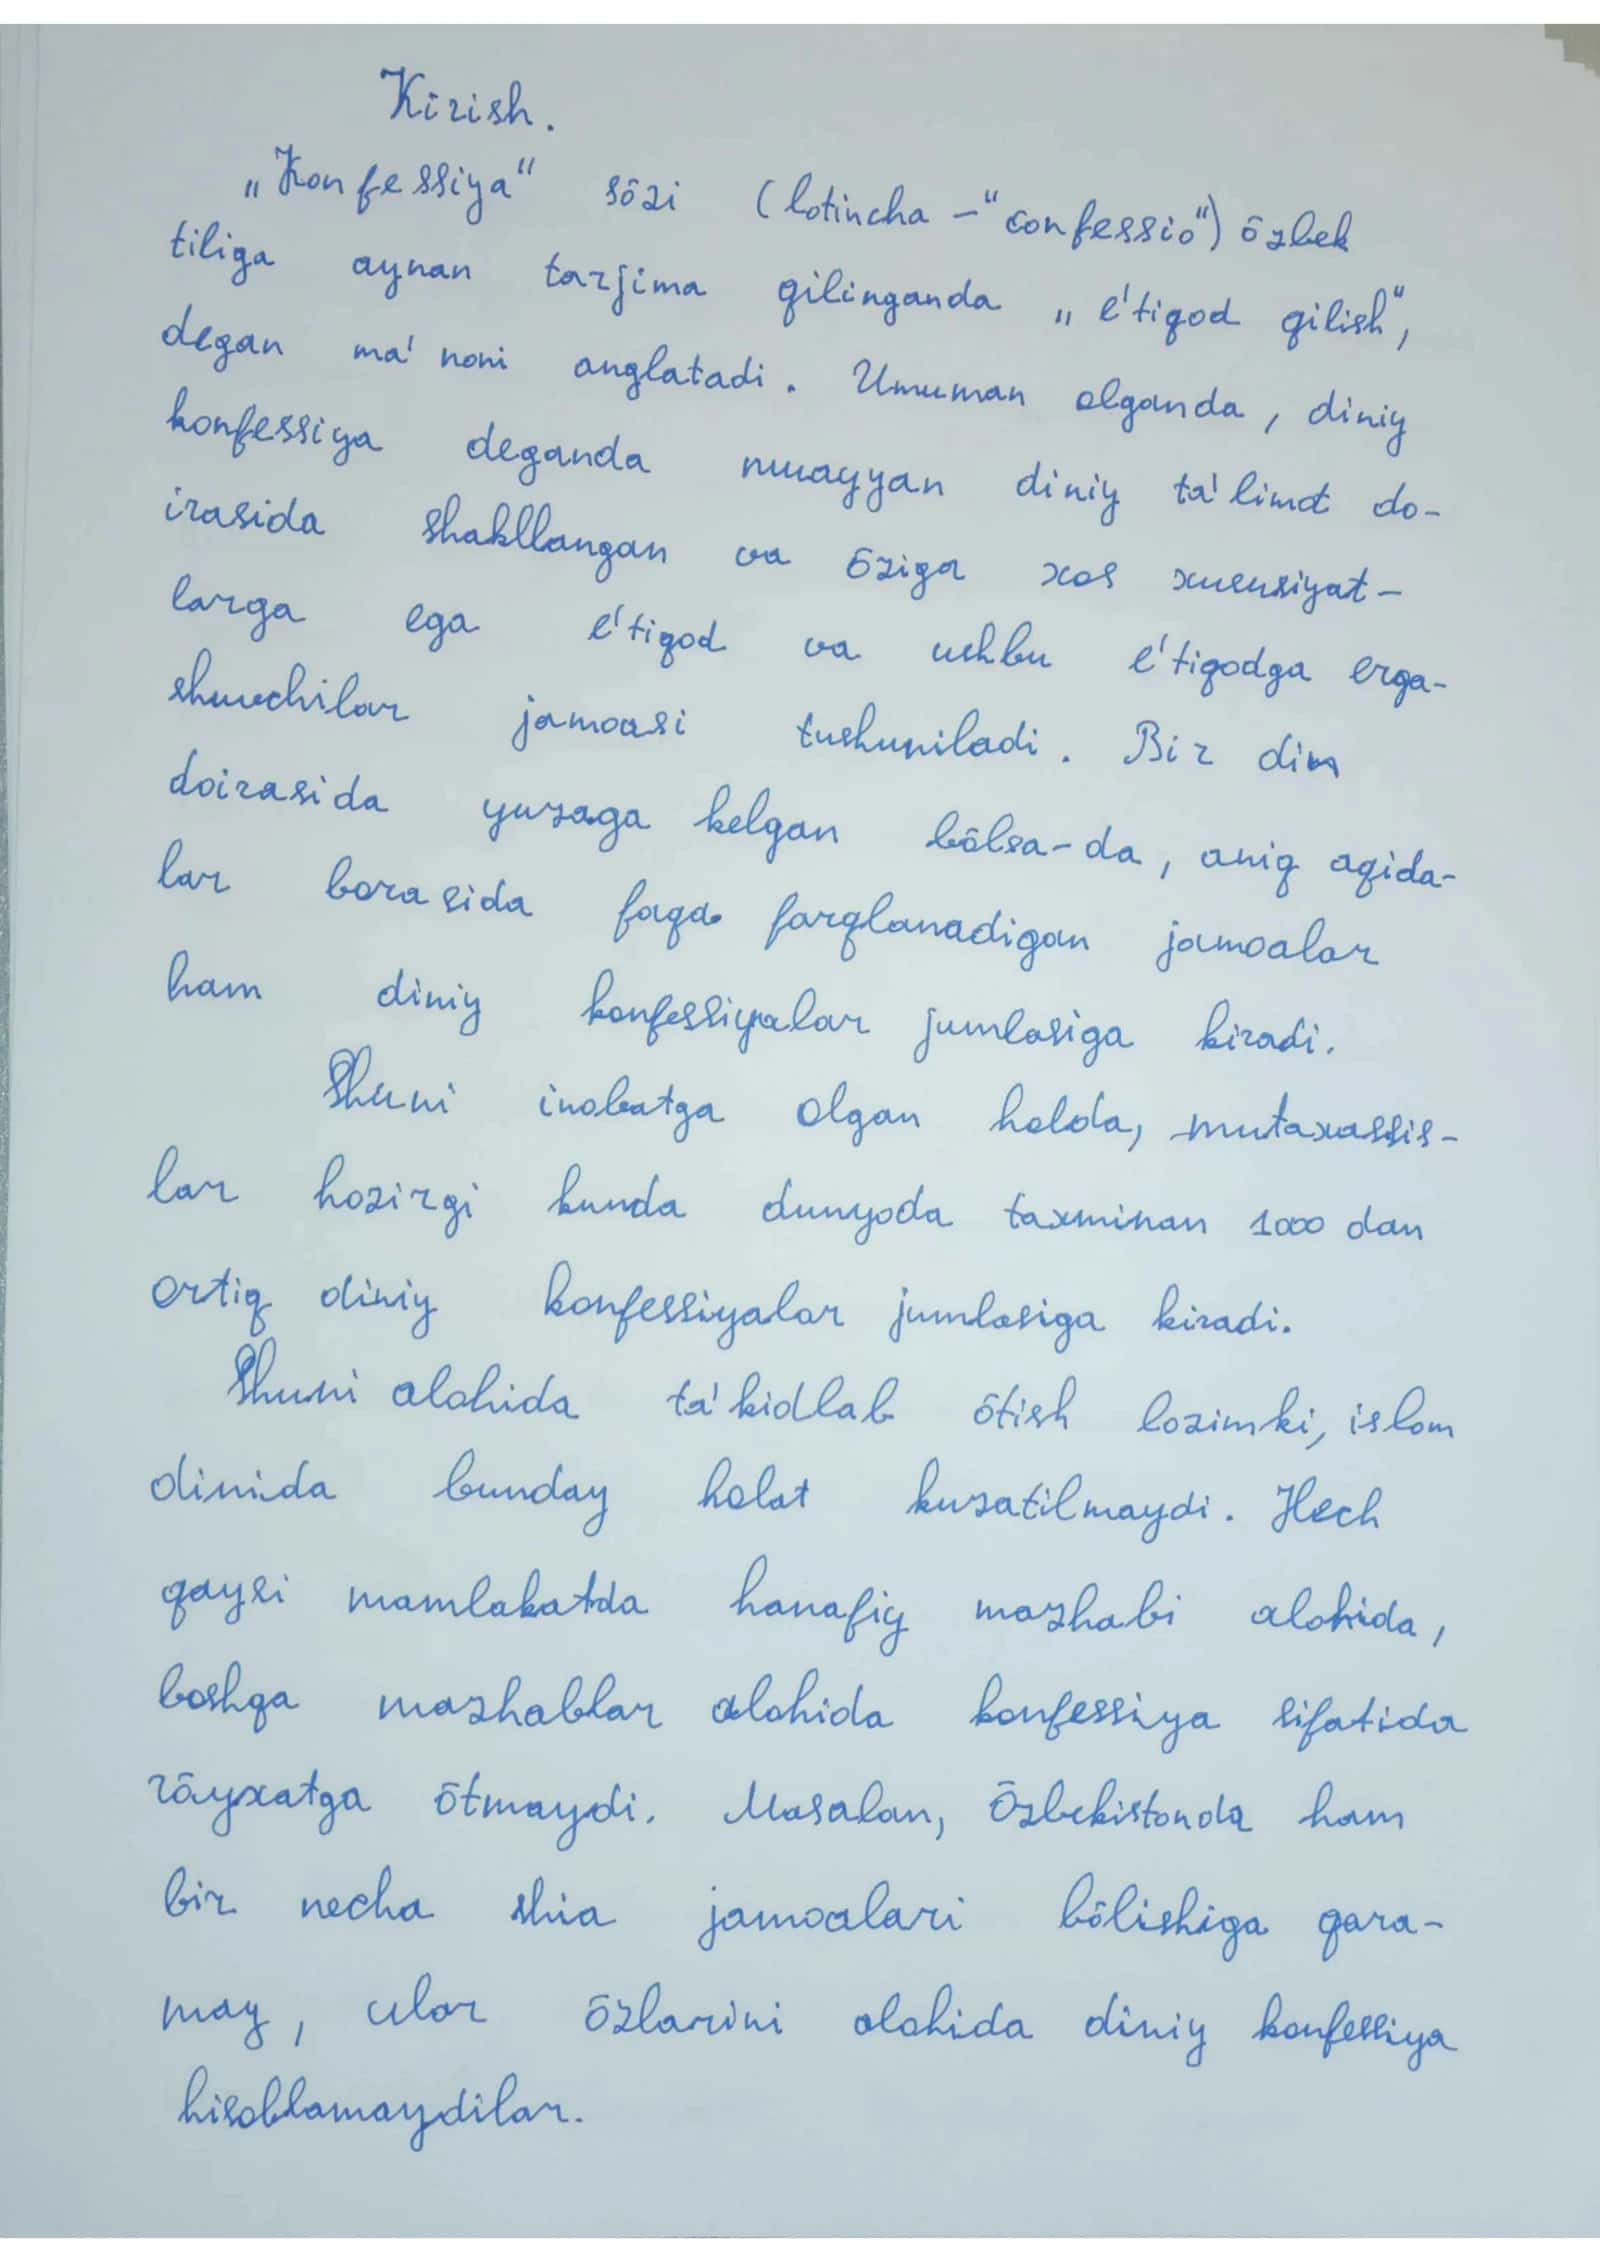 Kirish.
„Konfessiya" sōzi (lotincha –"confessio") ōzbek
tiliga aynan tarjima qilinganda „e'tiqod qilish",
degan ma'noni anglatadi. Umuman olganda, diniy
konfessiya deganda muayyan diniy ta'limot do-
irasida shakllangan va ōziga xos xususiyat-
larga ega e'tiqod va ushbu e'tiqodga erga-
shuvchilar jamoasi tushuniladi. Bir din
doirasida yuzaga kelgan bōlsa-da, aniq aqida-
lar borasida farqlanadigan jamoalar
ham diniy konfessiyalar jumlasiga kiradi.
Shuni inobatga olgan holda, mutaxassis-
lar hozirgi kunda dunyoda taxminan 1000 dan
ortiq diniy konfessiyalar jumlasiga kiradi.
Shuni alohida ta'kidlab ōtish lozimki, islom
dinida bunday holat kuzatilmaydi. Hech
qaysi mamlakatda hanafiy mazhabi alohida,
boshqa mazhablar alohida konfessiya sifatida
rōyxatga ōtmaydi. Masalan, Ōzbekistonda ham
bir necha shia jamoalari bōlishiga qara-
may, ular ōzlarini alohida diniy konfessiya
hisoblamaydilar.